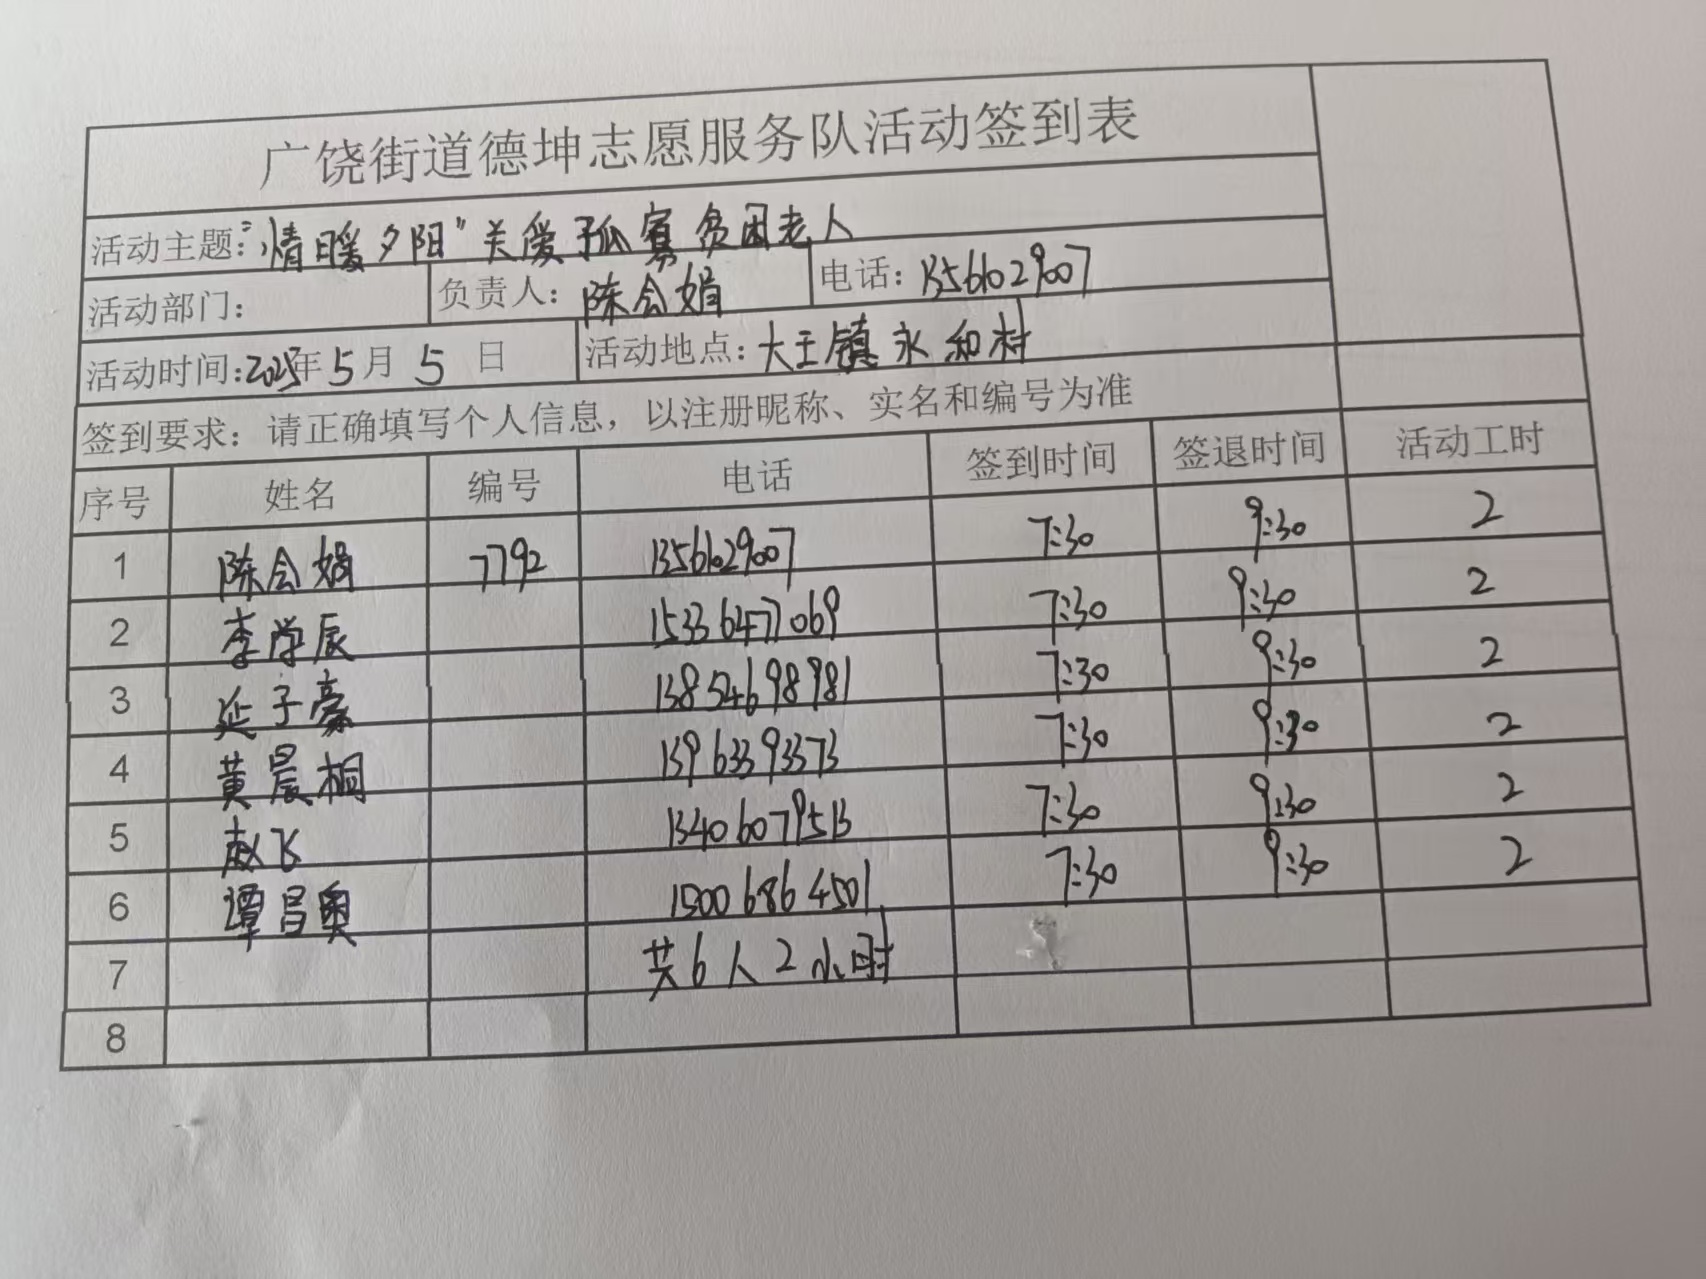 广饶街道德坤志愿服务队活动签到表
活动主题:"情暖夕阳"关爱孤寡贫困老人
活动部门: 负责人: 陈会娟 电话: 13561029007
活动时间:2025年5月5日 活动地点: 大王镇永和村
签到要求: 请正确填写个人信息, 以注册昵称、实名和编号为准
序号 姓名 编号 电话 签到时间 签退时间 活动工时
1 陈会娟 7792 13561029007 7:30 9:30 2
2 李学辰 15336477069 7:30 9:30 2
3 延子豪 13854698981 7:30 9:30 2
4 黄晨桐 13963393373 7:30 9:30 2
5 赵飞 13406079513 7:30 9:30 2
6 谭昌奥 15006864501 7:30 9:30 2
7 共6人2小时
8